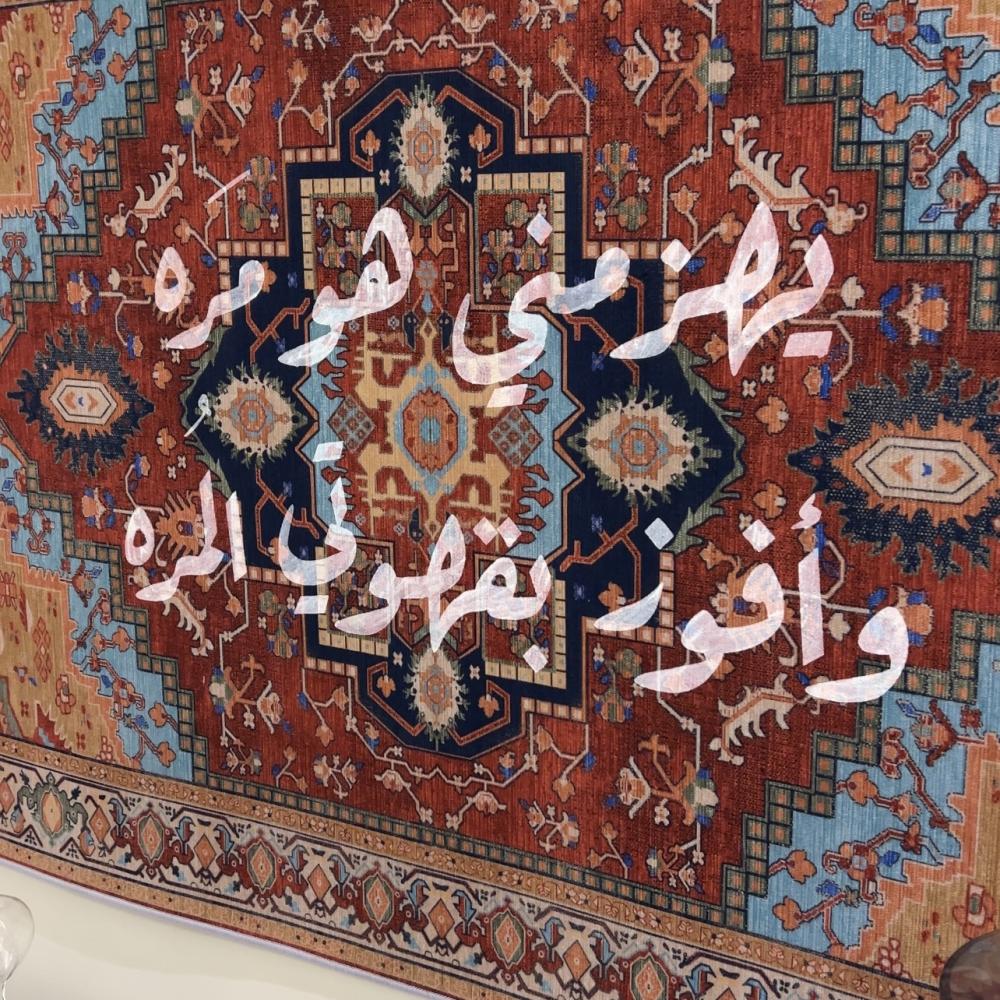 يهزمني هو مَره
وأفوز بقهوتي المره